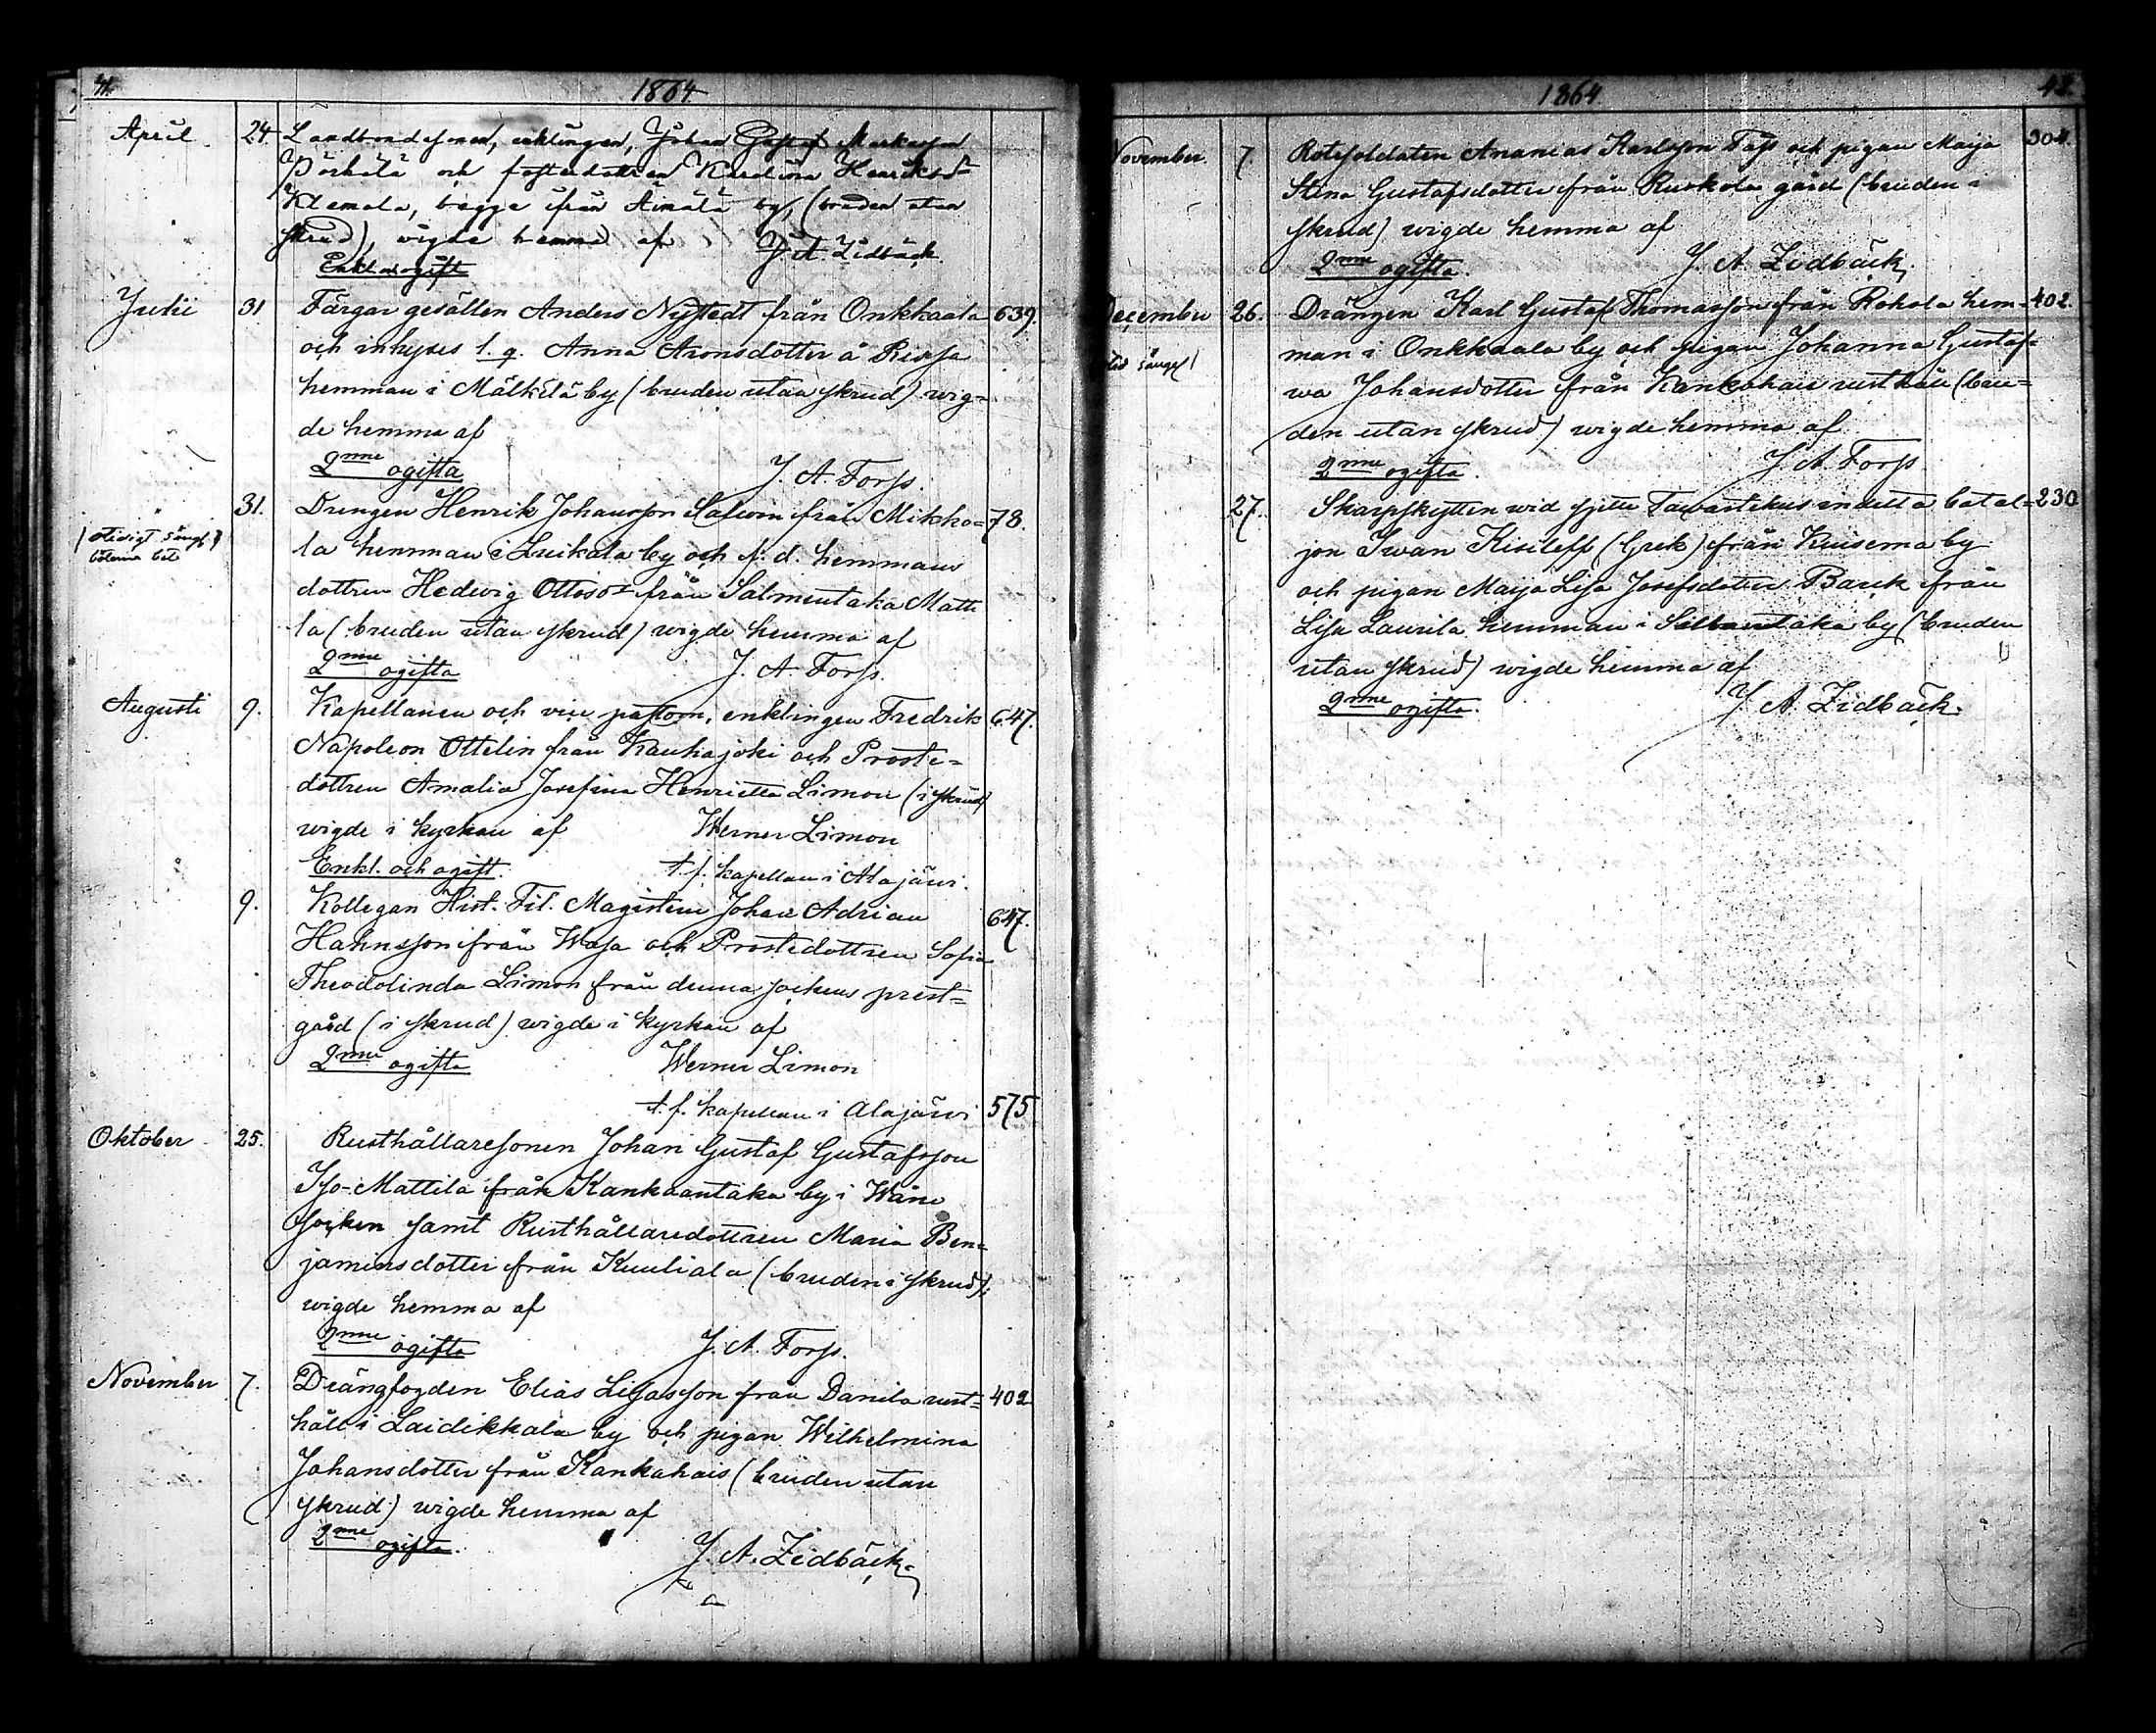 41.
1864
April 24. Landbondesonen, enklingen, Johan Gustaf Markusson
Pörhälä och fosterdottren Karolina Henriksdr
Klemola, begge ifrån Äimälä by, (bruden utan
skrud), wigde hemma af J. A. Zidbäck.
Enkl. o ogift
Julii 31 Färgar gesällen Anders Nystedt från Onkkaala 639.
och inhyses l. q. Anna Aronsdotter å Rissa
hemman i Mälkilä by (bruden utan skrud) wig=
de hemma af
2nne ogifta J. A. Forss.
31. Drengen Henrik Johansson Salwin från Mikko= 78.
(otidigt sängl.)
böterna bet.
la hemman i Luikala by och f. d. hemmans
dottren Hedvig Ottosdr från Salmentaka Matti
la (bruden utan skrud) wigde hemma af
2nne ogifta J. A. Forss.
Augusti 9. Kapellanen och vice pastorn, enklingen Fredrik 647.
Napoleon Ottelin från Kauhajoki och Proste=
dottren Amalia Josefina Henrietta Limon (i skrud)
wigde i kyrkan af Werner Limon
Enkl. och ogift. t. f. kapellan i Alajärwi.
9. Kollegan Hist. Fil. Magistern Johan Adrian 647.
Hahnsson från Wasa och Prostedottren Sofia
Theodolinda Limon från denna sockens prest=
gård (i skrud) wigde i kyrkan af
2nne ogifta Werner Limon
t. f. kapellan i Alajärwi 575
Oktober 25. Rusthållaresonen Johan Gustaf Gustafsson
Iso-Mattila från Kankaantaka by i Wåno
socken samt Rusthållaredottren Maria Ben=
jaminsdotter från Kuuliala (bruden i skrud);
wigde hemma af
2nne ogifta J. A. Forss.
November 7. Drängfogden Elias Lisasson från Danila rust= 402
håll i Laidikkala by och pigan Wilhelmina
Johansdotter från Kankahais (bruden utan
skrud) wigde hemma af
2nne ogifta. J. A. Zidbäck.
1864 42.
November. 7. Rotesoldaten Ananias Karlsson Taps och pigan Maija 304.
Stina Gustafsdotter från Ruokola gård (bruden i
skrud) wigde hemma af
2nne ogifta. J. A. Zidbäck
December 26. Drängen Karl Gustaf Thomasson från Rokola hem= 402.
man i Onkkaala by och pigan Johanna Gustaf=
wa Johansdotter från Kankahais rusthåll (bru=
den utan skrud) wigde hemma af
2nne ogifta. J. A. Forss
27. Skarpskytten wid sjette Tawastehus indelta batal= 230
jon Iwan Kisileff (Grek) från Kuisema by
och pigan Maija Lisa Josefsdotter Barck från
Lisu Laurila hemman i Salmentaka by (bruden
utan skrud) wigde hemma af
2nne ogifta. J. A. Zidbäck.